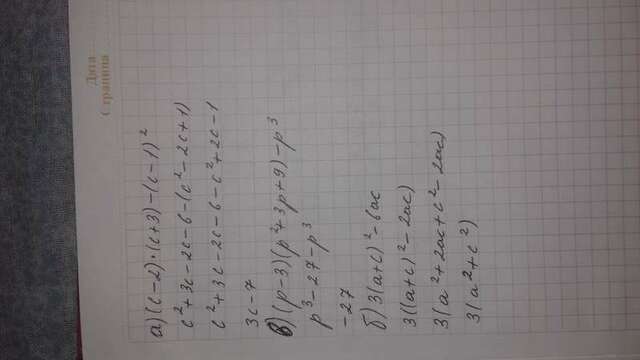 Дата
Страница
а) (c-2)·(c+3)-(c-1)²
c²+3c-2c-6-(c²-2c+1)
c²+3c-2c-6-c²+2c-1
3c-7
в) (p-3)(p²+3p+9)-p³
p³-27-p³
-27
б) 3(a+c)²-6ac
3((a+c)²-2ac)
3(a²+2ac+c²-2ac)
3(a²+c²)